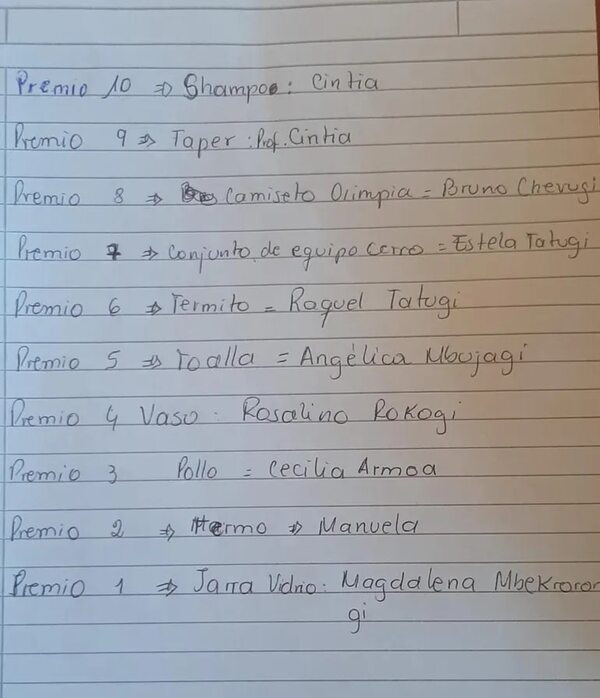 Premio 10 ⇒ Shampoo: Cintia
Premio 9 ⇒ Taper: Prof. Cintia
Premio 8 ⇒ Camiseto Olimpia = Bruno Chevugi
Premio 7 ⇒ Conjunto de equipo Cerro = Estela Tatugi
Premio 6 ⇒ Termito = Raquel Tatugi
Premio 5 ⇒ Toalla = Angélica Mbujagi
Premio 4 Vaso: Rosalino Rokogi
Premio 3 Pollo = Cecilia Armoa
Premio 2 ⇒ Termo ⇒ Manuela
Premio 1 ⇒ Jarra Vidrio: Magdalena Mbekroron
gi